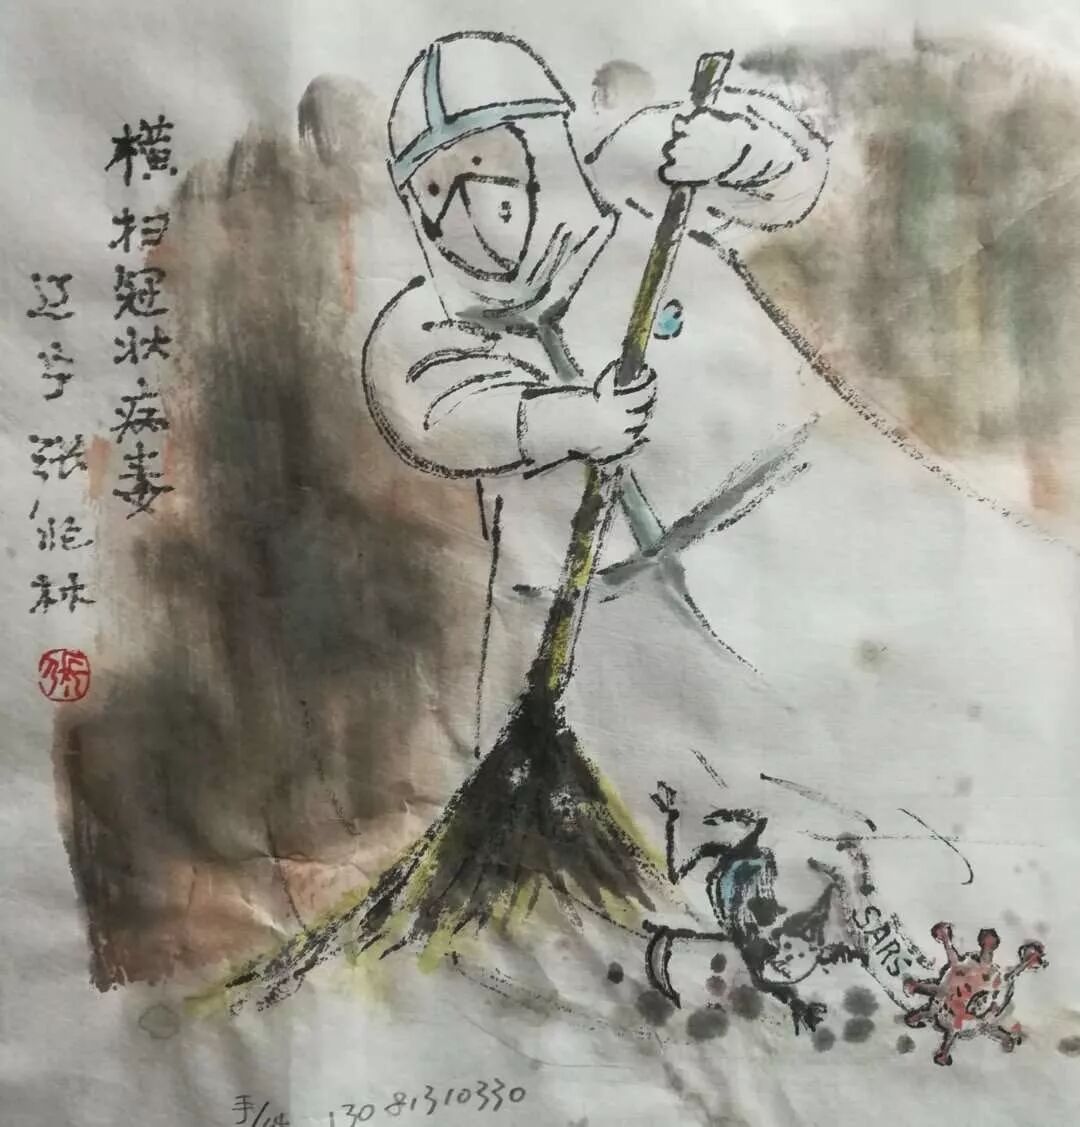 横扫冠状病毒
辽宁 张 林
张
SARS
手 13081310330